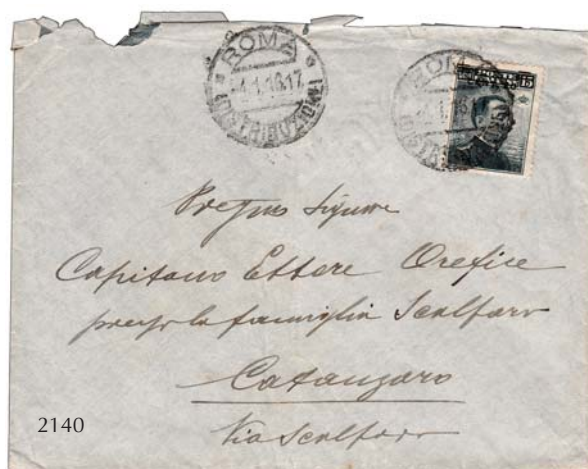 ROMA
4.1.16.17
Pregmo Signore
Capitano Ettore Orefice
presso la famiglia Scalfaro
Catanzaro
Via Scalfaro
2140